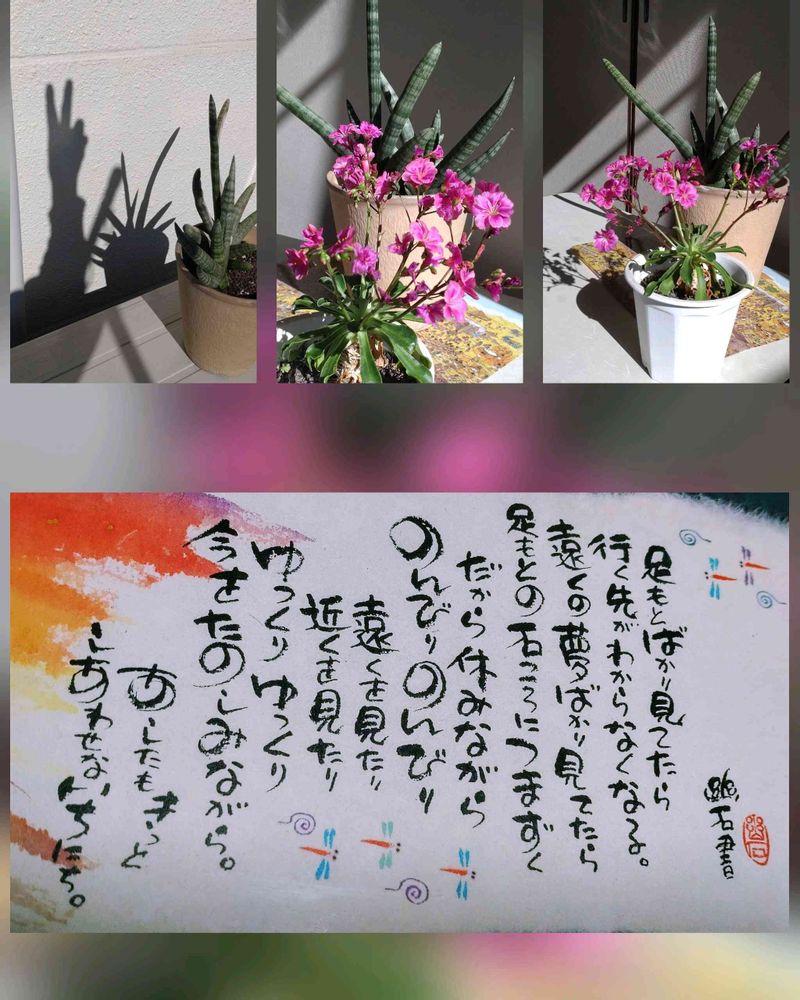 足もとばかり見てたら
行く先がわからなくなる。
遠くの夢ばかり見てたら
足もとの石ころにつまずく
だから休みながら
のんびりのんびり
遠くを見たり
近くを見たり
ゆっくりゆっくり
今をたのしみながら。
あしたもきっと
しあわせないちにち。